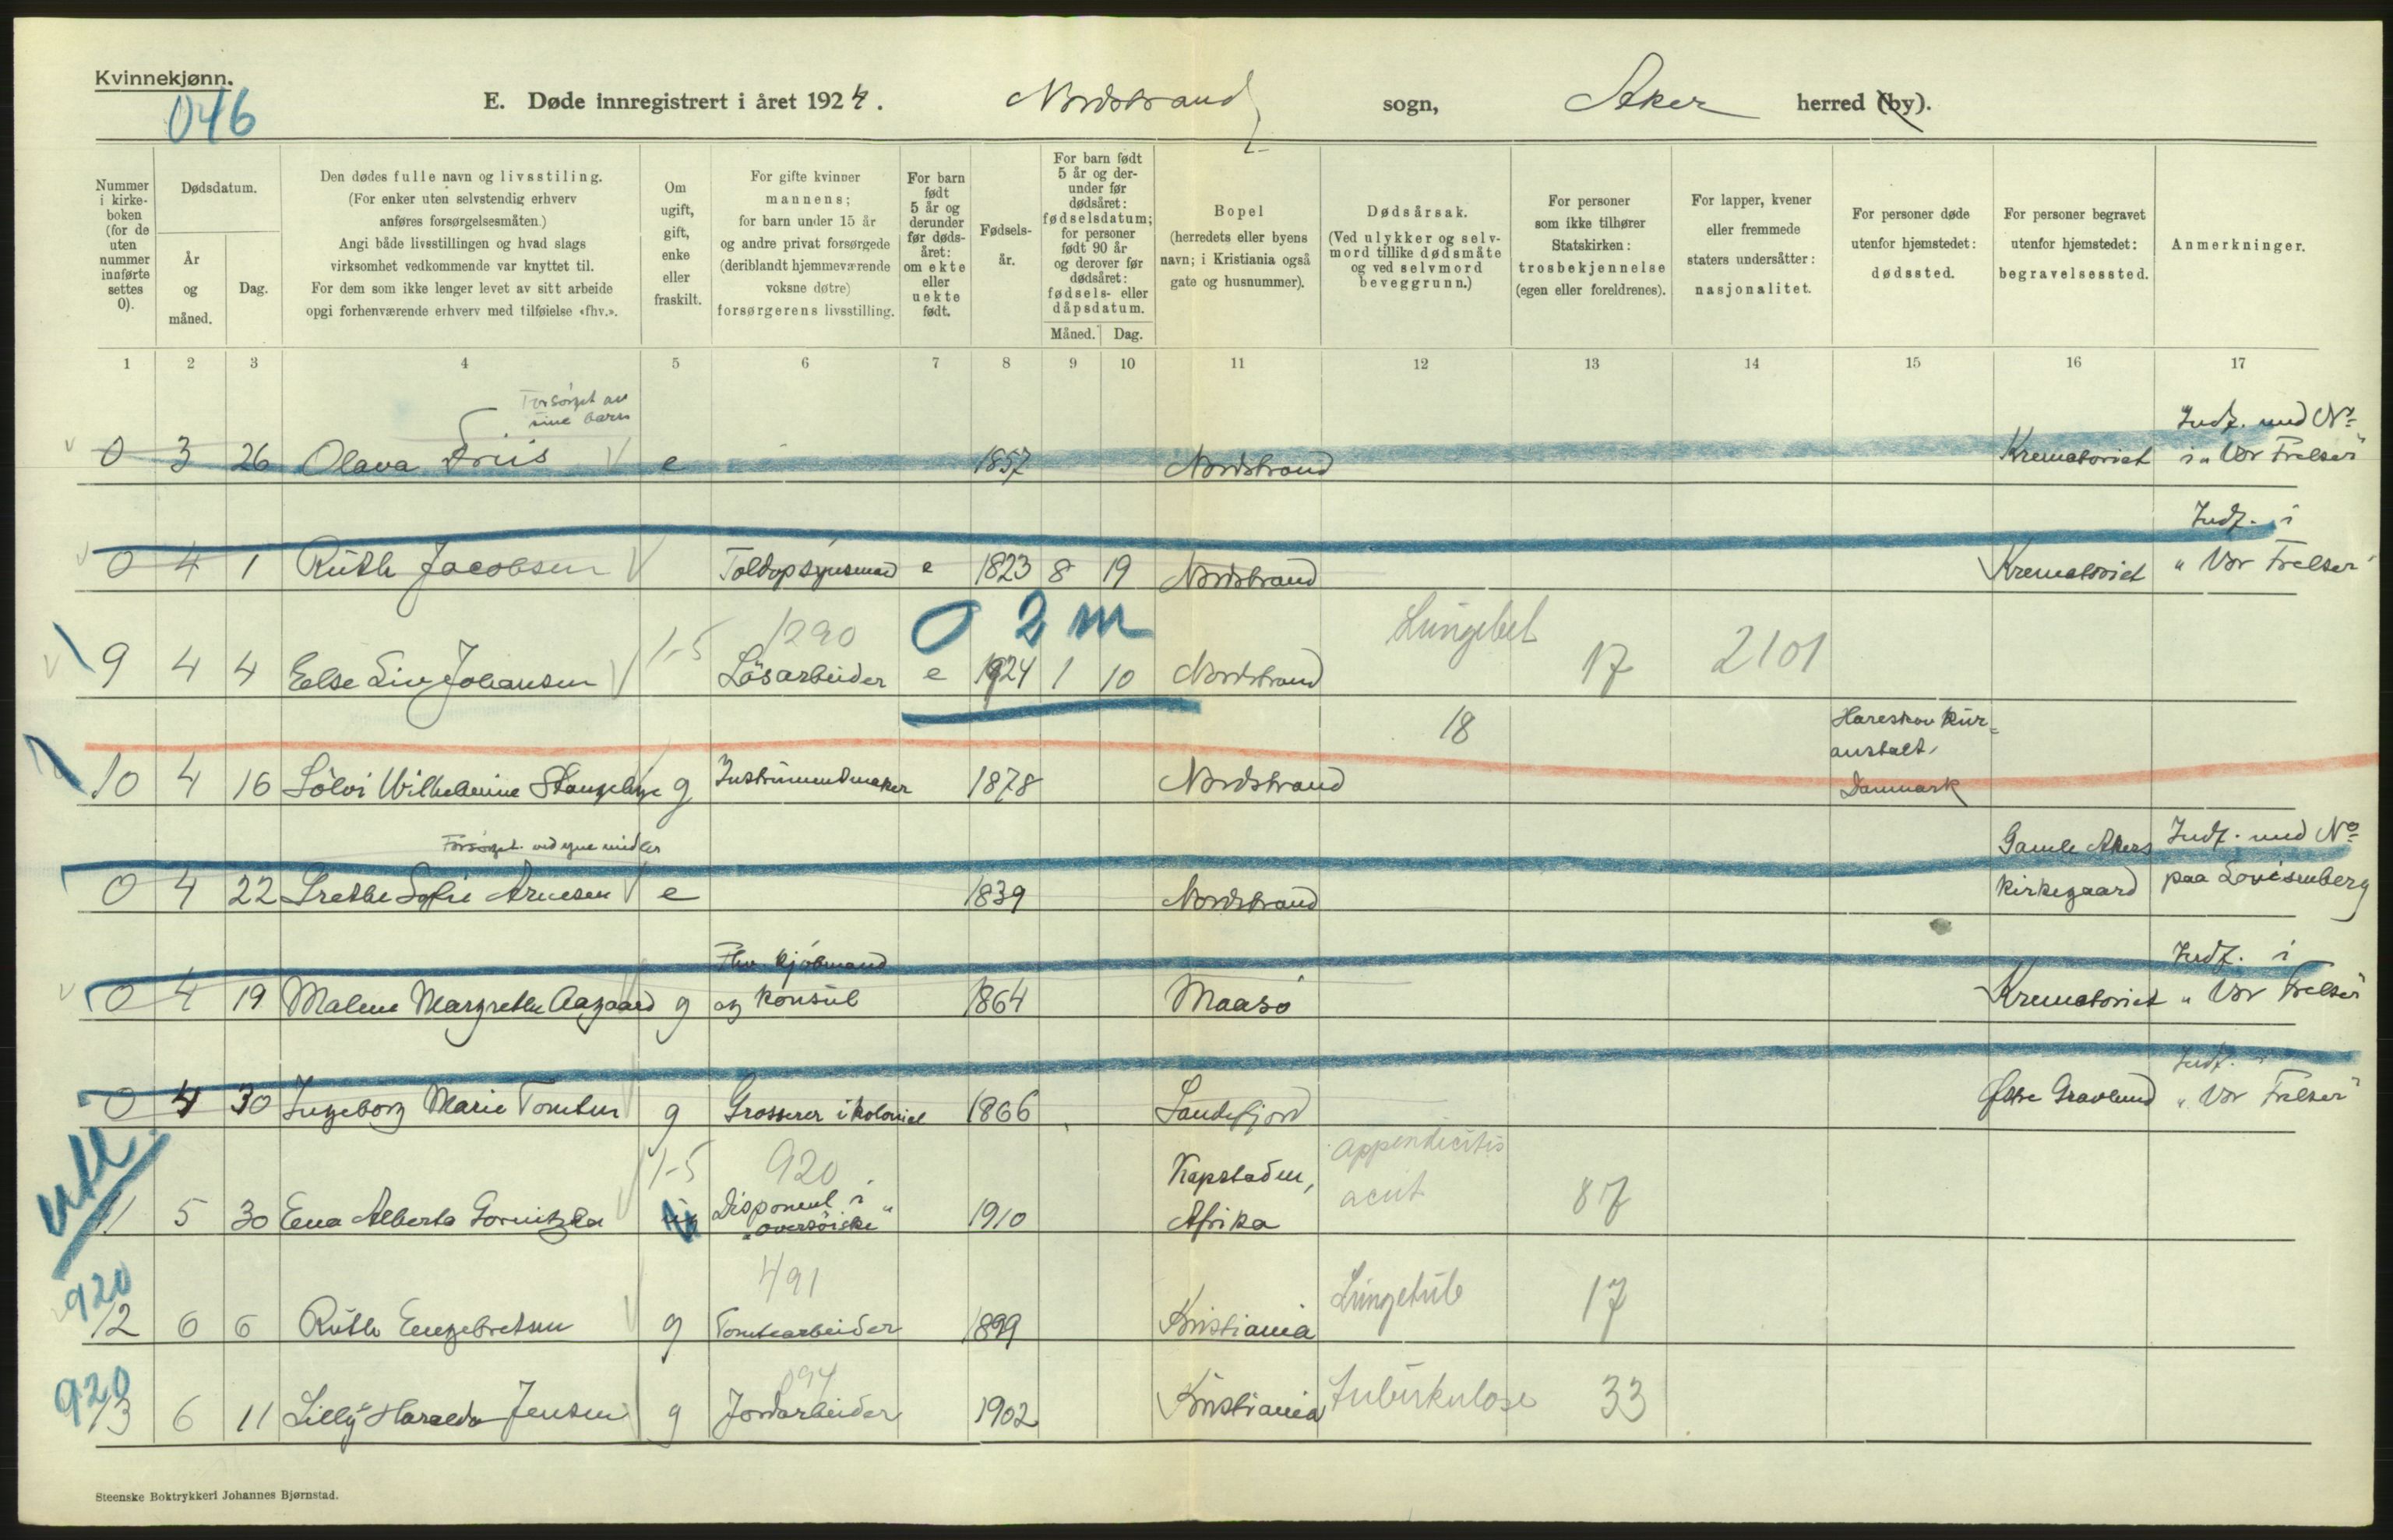 Kvinnekjønn.
046
E. Døde innregistrert i året 1924. Nordstrand sogn, Aker herred (by).
Nummer i kirke-boken (for de uten nummer innførte settes 0).
Dødsdatum.
År og måned.
Dag.
Den dødes fulle navn og livsstiling.
(For enker uten selvstendig erhverv
anføres forsørgelsesmåten.)
Angi både livsstillingen og hvad slags
virksomhet vedkommende var knyttet til.
For dem som ikke lenger levet av sitt arbeide
opgi forhenværende erhverv med tilføielse «fhv.».
Om ugift, gift, enke eller fraskilt.
For gifte kvinner
mannens;
for barn under 15 år
og andre privat forsørgede
(deriblandt hjemmeværende
voksne døtre)
forsørgerens livsstilling.
For barn født 5 år og derunder før døds-året: om ekte eller uekte født.
Fødsels-år.
For barn født 5 år og der-under før dødsåret: fødselsdatum; for personer født 90 år og derover før dødsåret: fødsels- eller dåpsdatum.
Måned. Dag.
Bopel
(herredets eller byens
navn; i Kristiania også
gate og husnummer).
Dødsårsak.
(Ved ulykker og selv-
mord tillike dødsmåte
og ved selvmord
beveggrunn.)
For personer
som ikke tilhører
Statskirken:
trosbekjennelse
(egen eller foreldrenes).
For lapper, kvener
eller fremmede
staters undersåtter:
nasjonalitet.
For personer døde
utenfor hjemstedet:
dødssted.
For personer begravet
utenfor hjemstedet:
begravelsessted.
Anmerkninger.
1 2 3 4 5 6 7 8 9 10 11 12 13 14 15 16 17
Forsörget av
sine barn
Indf. med No
0 3 26 Olava Friis e 1857 Nordstrand Krematoriet i „Vor Frelser"
Indf. i
0 4 1 Ruth Jacobsen Toldopsynsmand e 1823 8 19 Nordstrand Krematoriet „Vor Frelser"
0 2 m
1-5 1290 Lungebet 17 2101
9 4 4 Else Liv Johansen Lösarbeider e 1924 1 10 Nordstrand
18 Hareskov Kur=
anstalt,
10 4 16 Sölvi Wilhelmine Stangebye g Instrumentmaker 1878 Nordstrand Danmark
Forsörget ved egne midler
Gamle Akers Indf. med No
0 4 22 Grethe Sofie Arnesen e 1839 Nordstrand Kirkegaard paa Lovisenberg
Fhv. Kjöbmand Indf. i
0 4 19 Malene Margrethe Aagaard g og Konsul 1864 Maasö Krematoriet „Vor Frelser"
Indf. i
0 4 30 Ingeborg Marie Tomten g Grosserer i kolonial 1866 Sandefjord Østre Gravlund „Vor Frelser"
utl
1-5 920 Kapstaden, appendicitis
11 5 30 Ena Alberta Gornitzka ug Disponent i „oversöiske" 1910 Afrika acut 87
920
491
12 6 6 Ruth Engebretsen g Tomtearbeider 1899 Kristiania Lungetub 17
920
094
13 6 11 Lilly Haralda Jensen g Jordarbeider 1902 Kristiania tuberkulose 33
Steenske Boktrykkeri Johannes Bjørnstad.